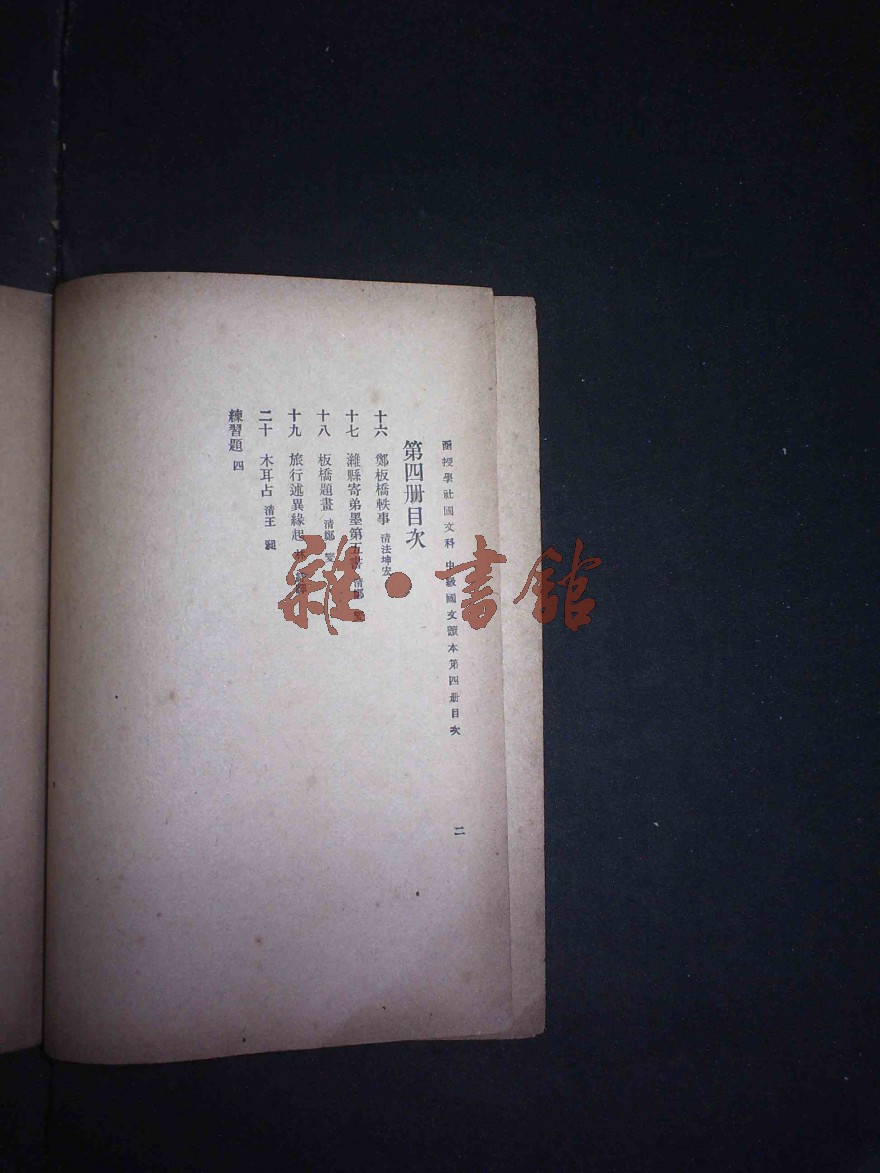 函授學社國文科 中級國文讀本第四册目次 二
第四册目次
十六 鄭板橋軼事 清法坤宏
十七 濰縣寄弟墨第五書 清鄭 燮
十八 板橋題畫 清鄭 燮
十九 旅行述異緣起 林 紓譯
二十 木耳占 清王
練習題 四
雜·書館